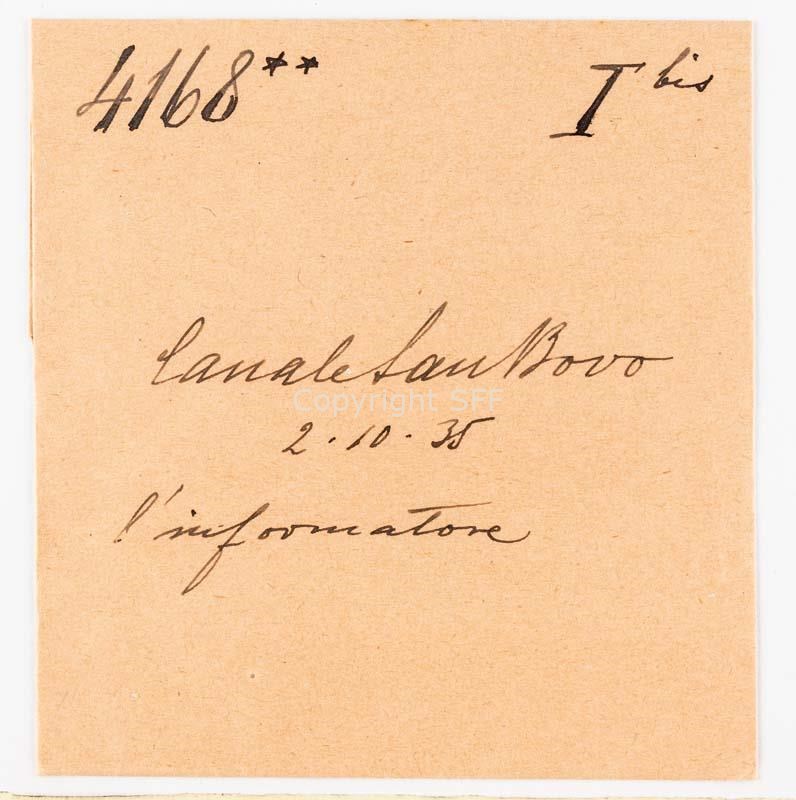 4168** I bis
Canale San Bovo
Copyright SFF
2.10.35
l'informatore